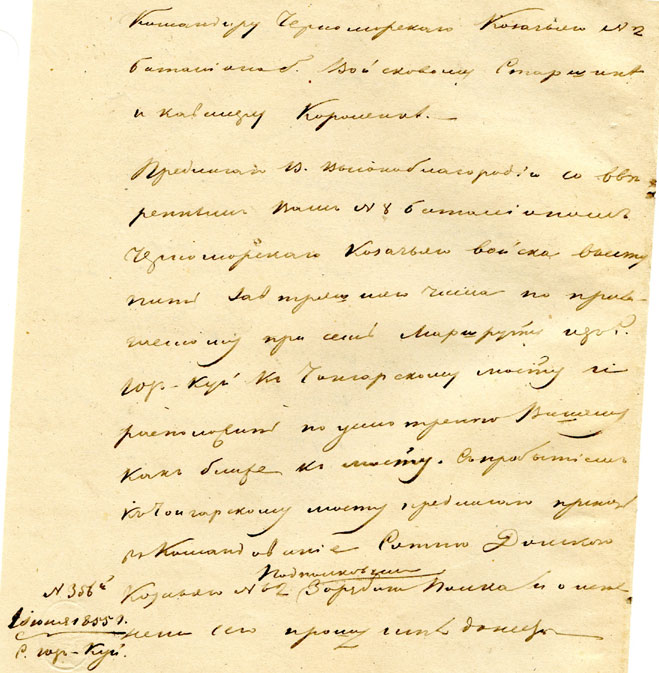 Командиру Черноморскаго Козачьяго № 2
баталіона Г. Войсковому Старшинѣ
и кавалеру Короленкѣ. —
Предлагаю В. Высокоблагородію со ввѣ
реннымъ Вамъ № 8 баталіономъ
Черноморскаго Козачьяго войска высту
пить завтрашняго числа по прила-
гаемому при семъ Маршруту изъ С.
Юз-Куй къ Чонгарскому мосту и
расположить по усмотренію Вашему
какъ ближе къ мосту. Съ прибытіемъ
къ Чонгарскому мосту предлагаю принять
въ Командованіе Сотню Донскаго
Подполковника
Козачьяго № 62 Полка и о испол
неніи сего прошу мнѣ донесть
№ 356й
Іюня 1855 г.
С. Юз-Куй.